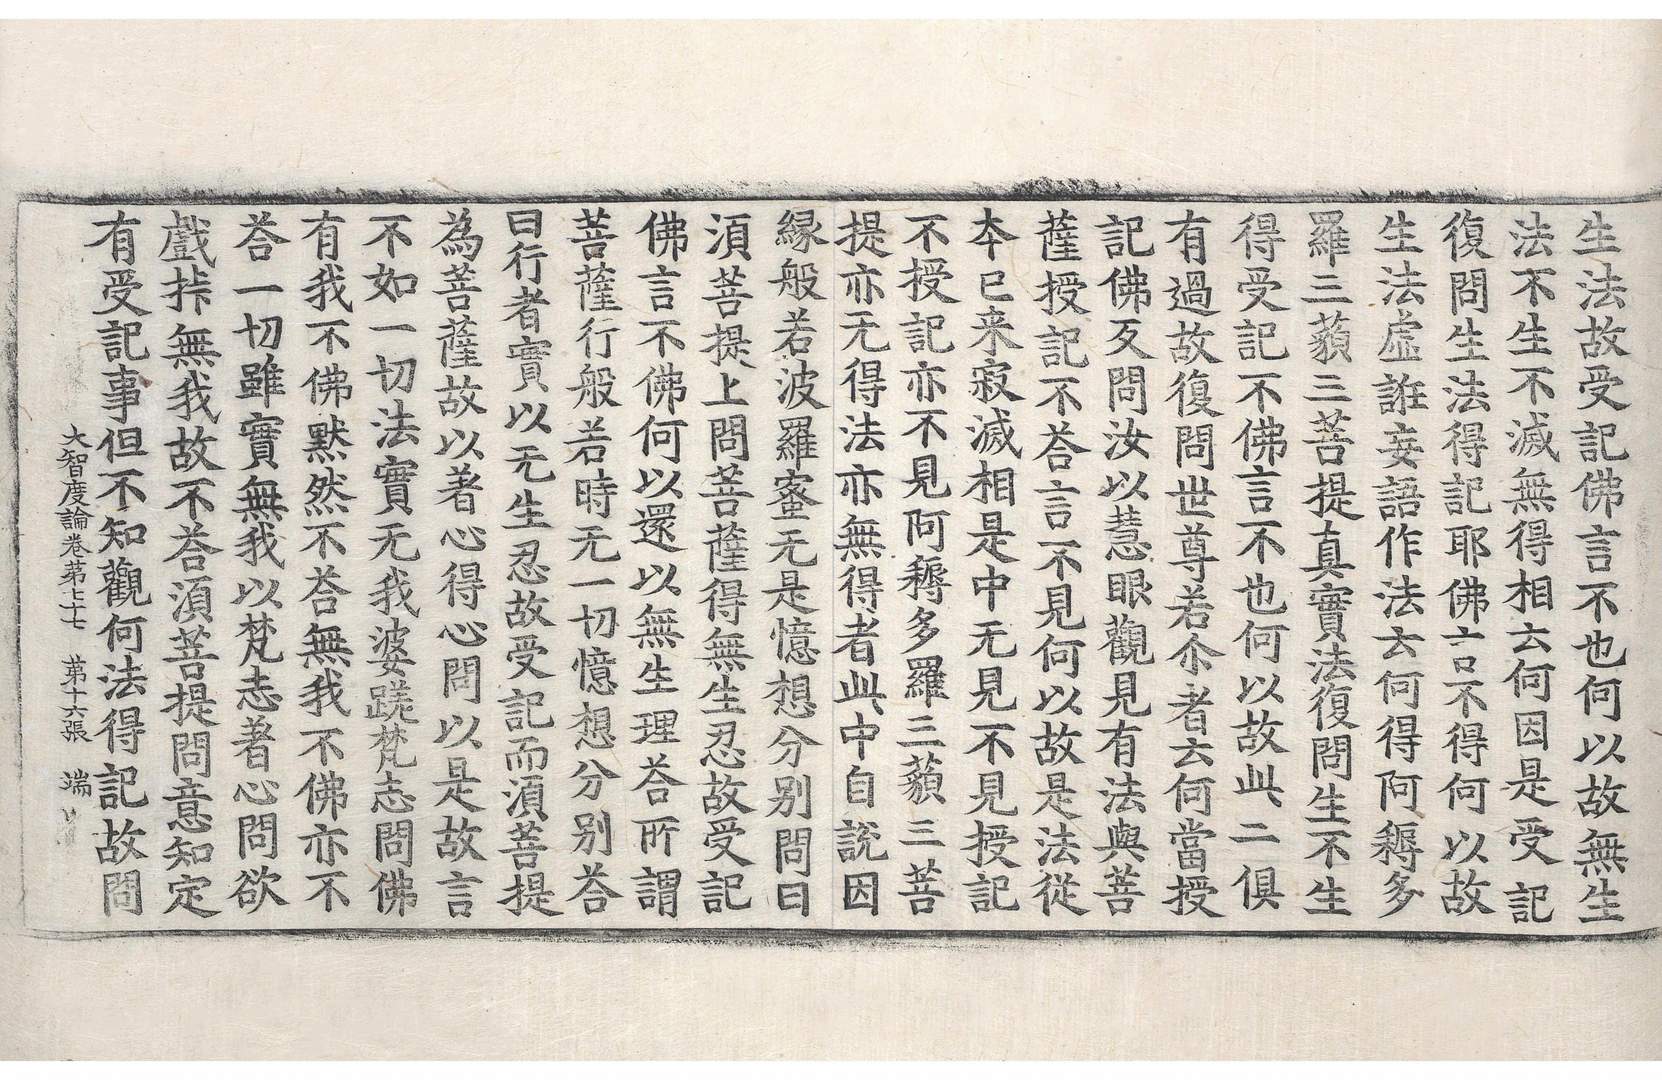 生法故受記佛言不也何以故無生
法不生不滅無得相云何因是受記
復問生法得記耶佛言不得何以故
生法虛誑妄語作法云何得阿耨多
羅三藐三菩提真實法復問生不生
得受記不佛言不也何以故此二俱
有過故復問世尊若尒者云何當授
記佛反問汝以慧眼觀見有法與菩
薩授記不荅言不見何以故是法從
本已来寂滅相是中无見不見授記
不授記亦不見阿耨多羅三藐三菩
提亦无得法亦無得者此中自說因
緣般若波羅蜜无是憶想分別問曰
湏菩提上問菩薩得無生忍故受記
佛言不佛何以還以無生理荅所謂
菩薩行般若時无一切憶想分別荅
曰行者實以无生忍故受記而湏菩提
為菩薩故以著心得心問以是故言
不如一切法實无我婆蹉梵志問佛
有我不佛默然不荅無我不佛亦不
荅一切雖實無我以梵志著心問欲
戲挊無我故不荅湏菩提問意知定
有受記事但不知觀何法得記故問
大智度論卷苐七十七 苐十六張 端